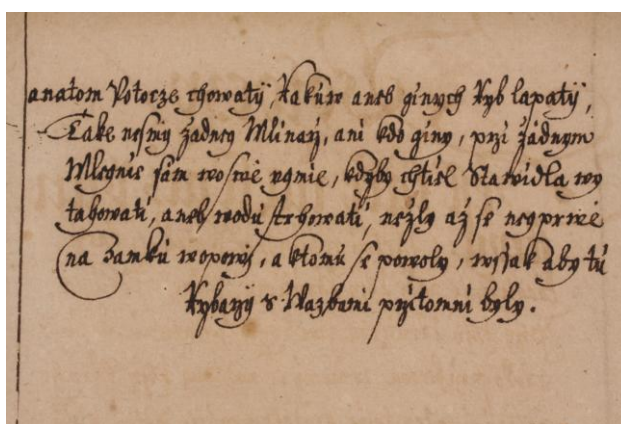 anatom Potocze chowatÿ, Rakúw aneb ginych Ryb lapatÿ,
Take nesmÿ žadneÿ Mlinarž, ani kdo giny, przi žádnym
Mlegnie sám wo swé ugmie, kdyby chtiel Stawidla wy
tahowati, aneb wodu strhowati, nežly až se neyprwé
na Zamkú wopowÿ, a ktomu se powoly, wssak aby tú
Rybarži s Wazbami przitomni byly.